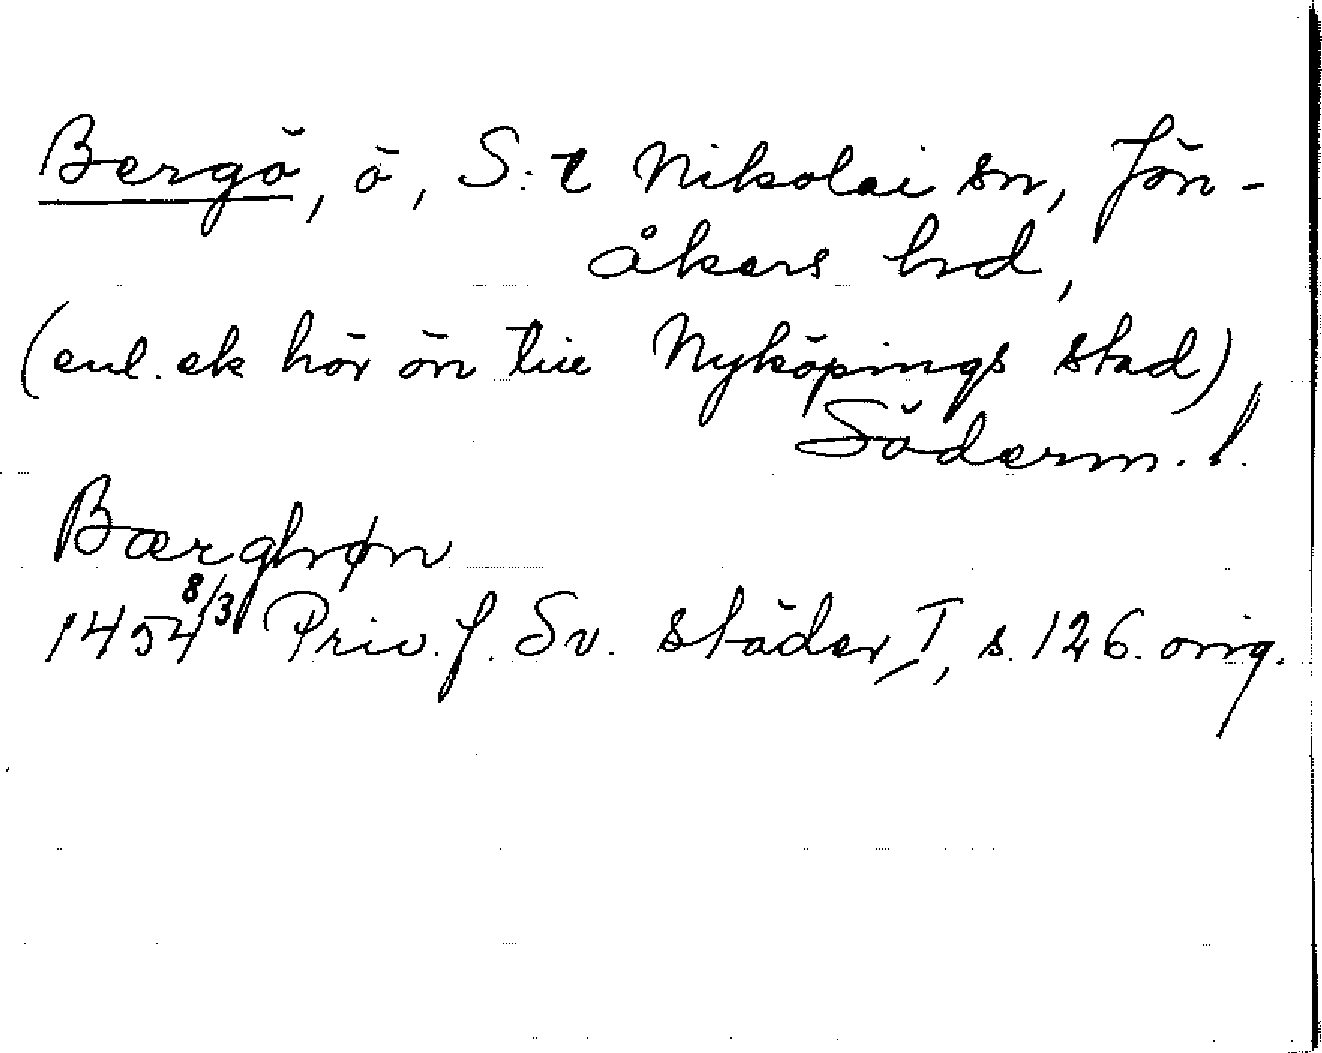 Bergö, ö, S:t Nikolai sn, Jön-
åkers hrd,
(enl. ek hör ön till Nyköpings stad),
Söderm. l.
Bærghøn
1454 8/3 Priv. f. Sv. städer, I, s. 126. orig.